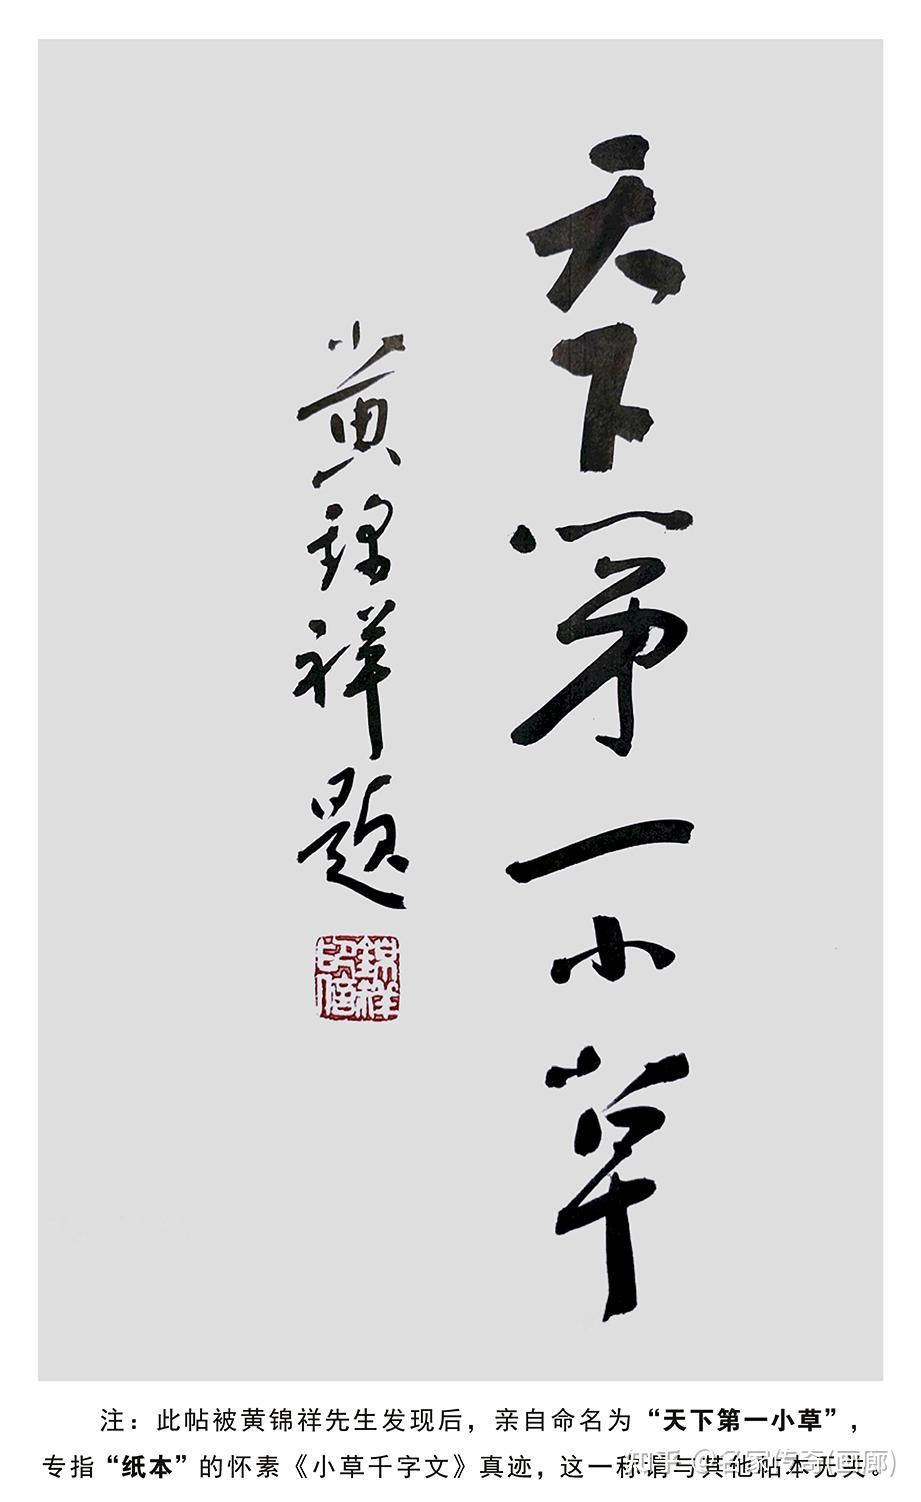 天下第一小草
黄锦祥题
錦祥
印信
注：此帖被黄锦祥先生发现后，亲自命名为“天下第一小草”，
专指“纸本”的怀素《小草千字文》真迹，这一称谓与其他帖本无关。
知乎 @名家传奇(画廊)